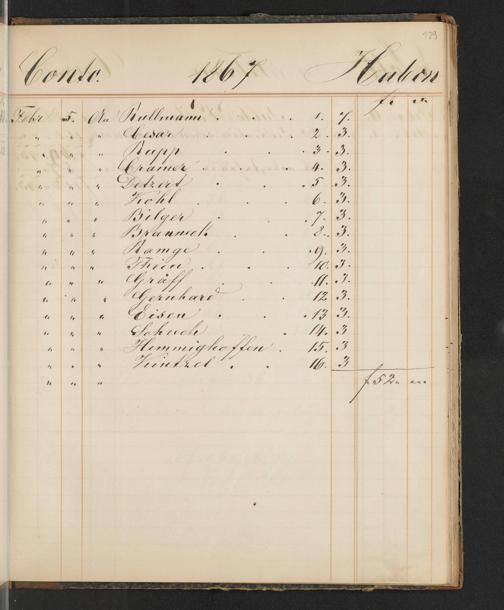 129
Conto. 1867 Haben
fr. xr.
Febr 5. An Kullmann . . 1. 7.
" " " Cesar . . 2. 3.
" " " Rapp . . 3. 3.
" " " Cramer . . 4. 3.
" " " Detroit . . 5. 3.
" " " Kohl . . 6. 3.
" " " Bilger . . 7. 3.
" " " Brauneck . . 8. 3.
" " " Ramge . . 9. 3.
" " " Thien . . 10. 3.
" " " Gräff . . 11. 3.
" " " Gernhard . . 12. 3.
" " " Eisen . . 13. 3.
" " " Schuch . . 14. 3.
" " " Hemmighoffen . 15. 3
" " " Küntzel . . 16. 3
" " " f 52